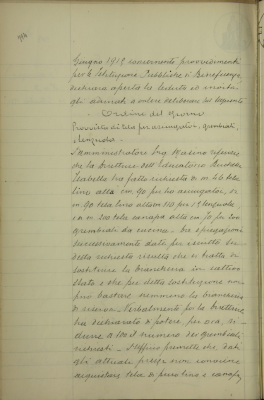 Giugno 1919 concernente provvedimenti
per le Istituzioni Pubbliche di Beneficenza,
dichiara aperta la seduta ed invita
gli adunati a volere deliberare sul seguente
Ordine del giorno
Provvista di tela per asciugatoi, grembiali,
lenzuola.
L'Amministratore Ing. Masino riferisce
che la Direttrice dell'Educatorio
Isabella ha fatto richiesta di m. 46 tela
lino alta cm. 90 per asciugatoi, di
m. 90 tela lino alta per lenzuola
e di m. 200 tela canapa alta cm. per 200
grembiali da cucina. Le spiegazioni
successivamente date per iscritto su
detta richiesta che si tratta di
sostituire la biancheria in cattivo
stato e che per detta sostituzione non
può bastare nemmeno la biancheria
di riserva. Verbalmente poi la Direttrice
ha dichiarato di potere, per ora, ri-
durre a 100 il numero dei grembiali
richiesti. L'ufficio premette che, dati
gli attuali prezzi non conviene
acquistare tela di puro lino e canapa,